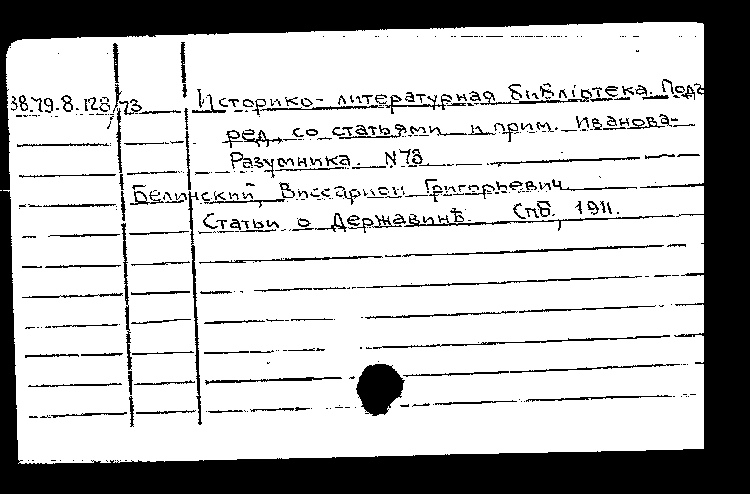 38.79.8.128/73 Историко-литературная библіотека. Подъ
ред., со статьями и прим. Иванова-
Разумника. N73.
Белинский, Виссарион Григорьевич.
Статьи о Державинѣ. Спб., 1911.